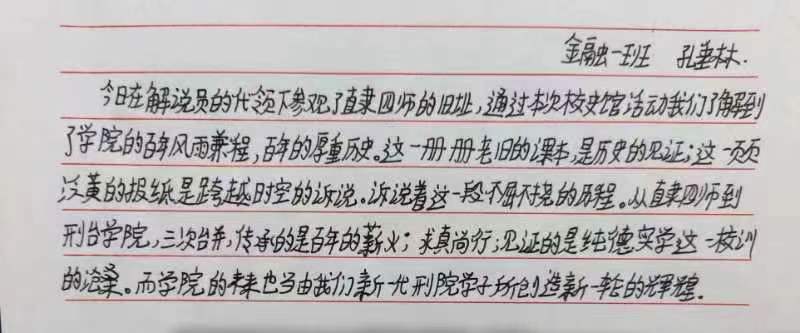 金融一班 孔垂林.
今日在解说员的代领下参观了直隶四师的旧址,通过本次校史馆活动我们了解到
了学院的百年风雨兼程,百年的厚重历史。这一册册老旧的课本,是历史的见证;这一页页
泛黄的报纸是跨越时空的诉说。诉说着这一段不屈不挠的历程。从直隶四师到
邢台学院,三次合并,传承的是百年的薪火;求真尚行,见证的是纯德实学这一校训
的沧桑。而学院的未来也当由我们新一代邢院学子所创造新一轮的辉煌.